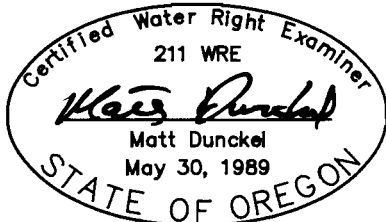 Certified Water Right Examiner
211 WRE
Matt Dunckel
Matt Dunckel
May 30, 1989
STATE OF OREGON